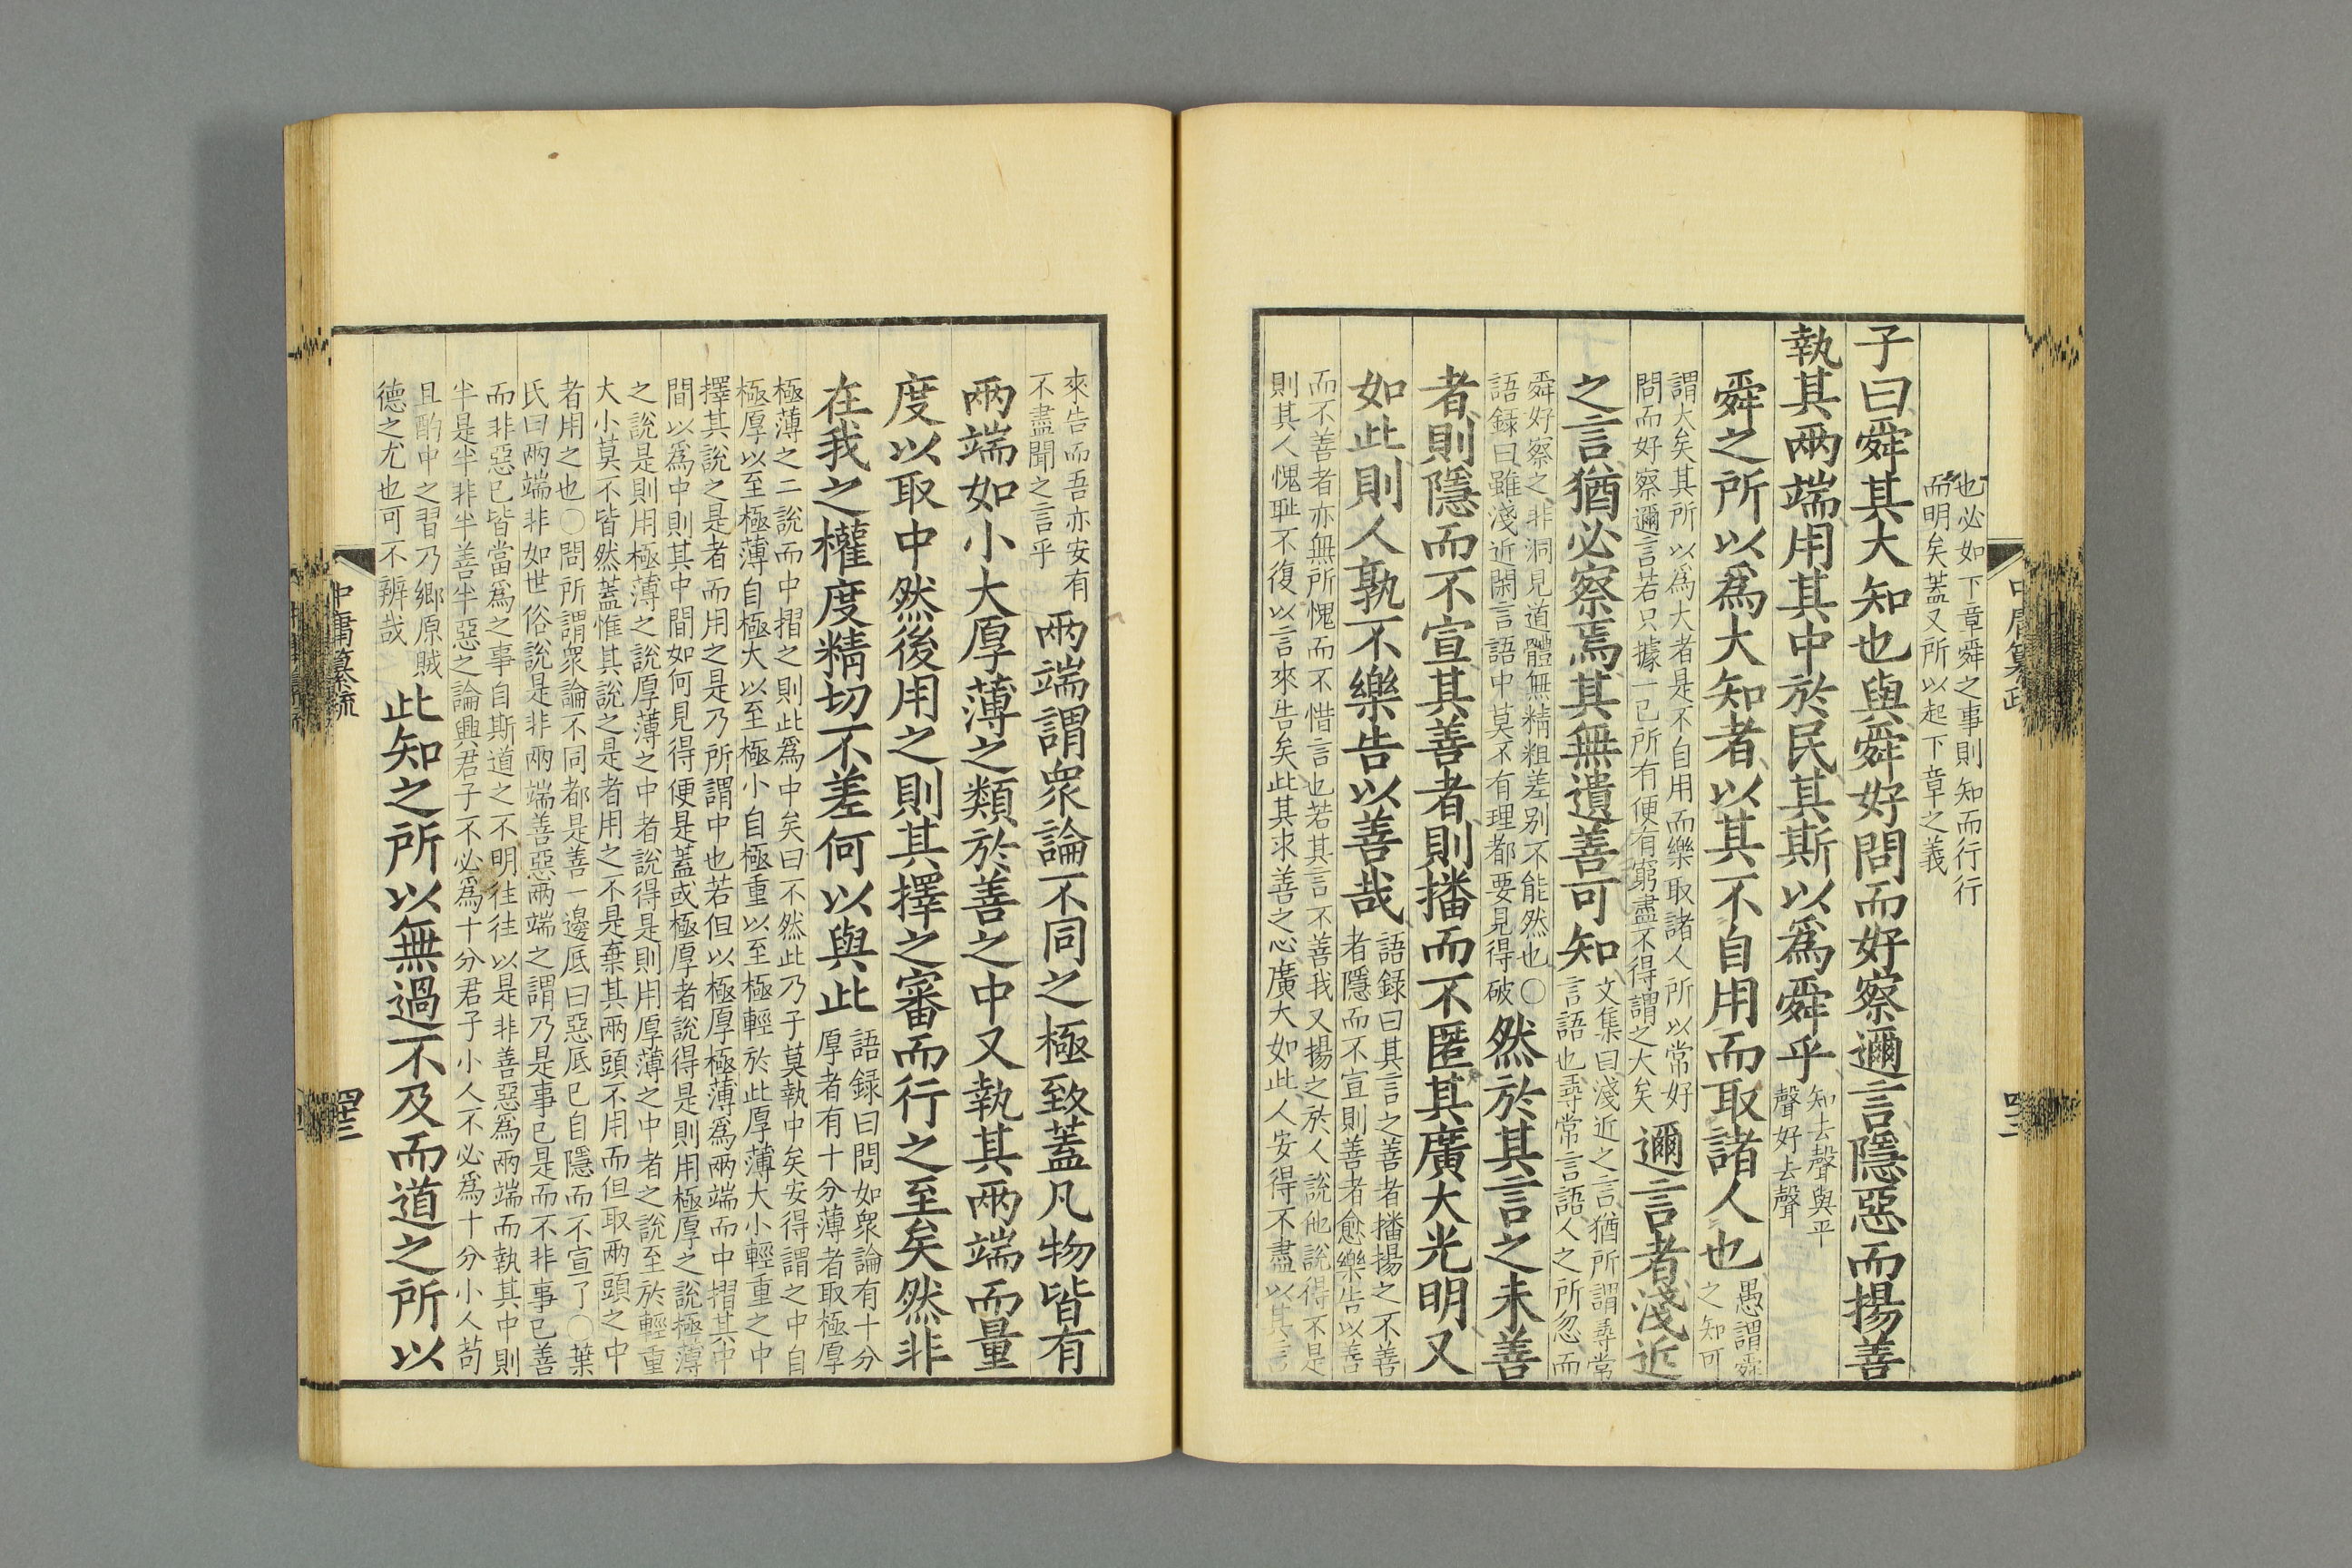 也必如下章舜之事則知而行行
而明矣蓋又所以起下章之義
子曰舜其大知也與舜好問而好察邇言隱惡而揚善
執其兩端用其中於民其斯以為舜乎
知去聲與平
聲好去聲
舜之所以為大知者以其不自用而取諸人也
愚謂舜
之知可
謂大矣其所以為大者是不自用而樂取諸人所以常好
問而好察邇言若只據一己所有便有窮盡不得謂之大矣
邇言者淺近
之言猶必察焉其無遺善可知
文集曰淺近之言猶所謂尋常
言語也尋常言語人之所忽而
舜好察之非洞見道體無精粗差別不能然也○
語録曰雖淺近閑言語中莫不有理都要見得破
然於其言之未善
者則隱而不宣其善者則播而不匿其廣大光明又
如此則人孰不樂告以善哉
語録曰其言之善者播揚之不善
者隱而不宣則善者愈樂告以善
而不善者亦無所愧而不惜言也若其言不善我又揚之於人說他說得不是
則其人愧耻不復以言來告矣此其求善之心廣大如此人安得不盡以其言
來告而吾亦安有
不盡聞之言乎
兩端謂衆論不同之極致蓋凡物皆有
兩端如小大厚薄之類於善之中又執其兩端而量
度以取中然後用之則其擇之審而行之至矣然非
在我之權度精切不差何以與此
語録曰問如衆論有十分
厚者有十分薄者取極厚
極薄之二說而中摺之則此為中矣曰不然此乃子莫執中矣安得謂之中自
極厚以至極薄自極大以至極小自極重以至極輕於此厚薄大小輕重之中
擇其說之是者而用之是乃所謂中也若但以極厚極薄為兩端而中摺其中
間以為中則其中間如何見得便是蓋或極厚者說得是則用極厚之說極薄
之說是則用極薄之說厚薄之中者說得是則用厚薄之中者之說至於輕重
大小莫不皆然蓋惟其說之是者用之不是棄其兩頭不用而但取兩頭之中
者用之也○問所謂衆論不同都是善一邊底曰惡底已自隱而不宣了○葉
氏曰兩端非如世俗說是非兩端善惡兩端之謂乃是事已是而不非事已善
而非惡已皆當為之事自斯道之不明往往以是非善惡為兩端而執其中則
半是半非半善半惡之論興君子不必為十分君子小人不必為十分小人苟
且酌中之習乃鄉原賊
德之尤也可不辨哉
此知之所以無過不及而道之所以
中庸纂疏
四十三